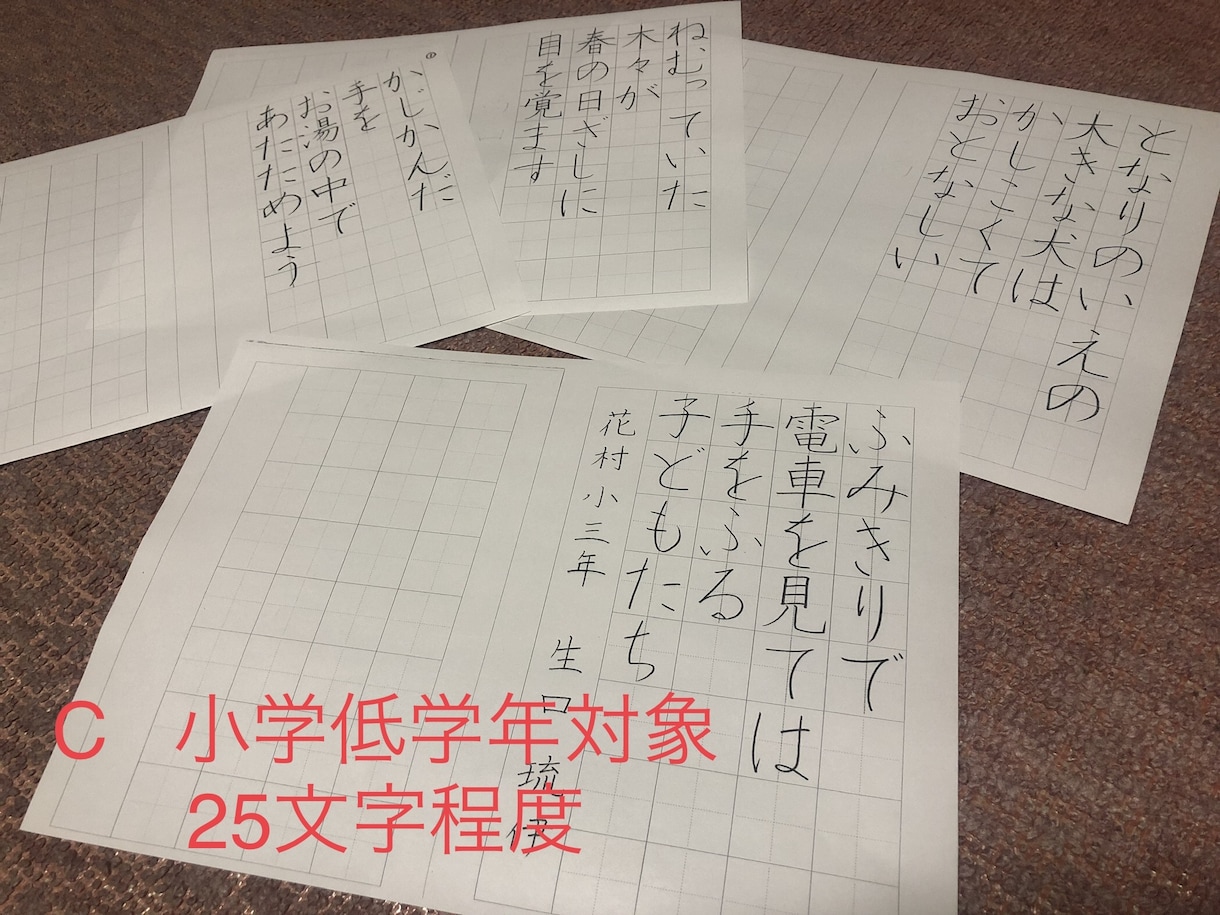 ①
かじかんだ
手を
お湯の中で
あたためよう
ねむっていた
木々が
春の日ざしに
目を覚ます
となりのいえの
大きな犬は
かしこくて
おとなしい
ふみきりで
電車を見ては
手をふる
子どもたち
花村小三年 生口琉伊
C 小学低学年対象
25文字程度